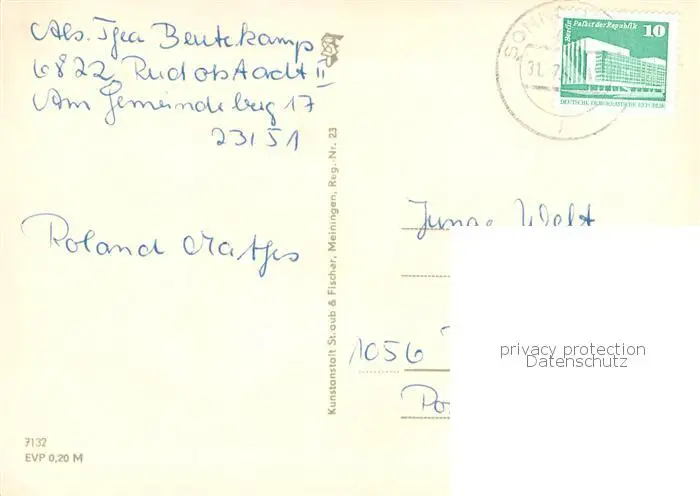 Abs. Inea Beutekamp
6822 Rudolstadt II
Am Gemeindeberg 17
23151
Roland Matjes
Kunstanstalt Straub & Fischer, Meiningen, Reg.-Nr. 23
7132
EVP 0,20 M
SONN
31. 7.
Berlin Palast der Republik
10
DEUTSCHE DEMOKRATISCHE REPUBLIK
Junge Welt
1056
Po
privacy protection
Datenschutz